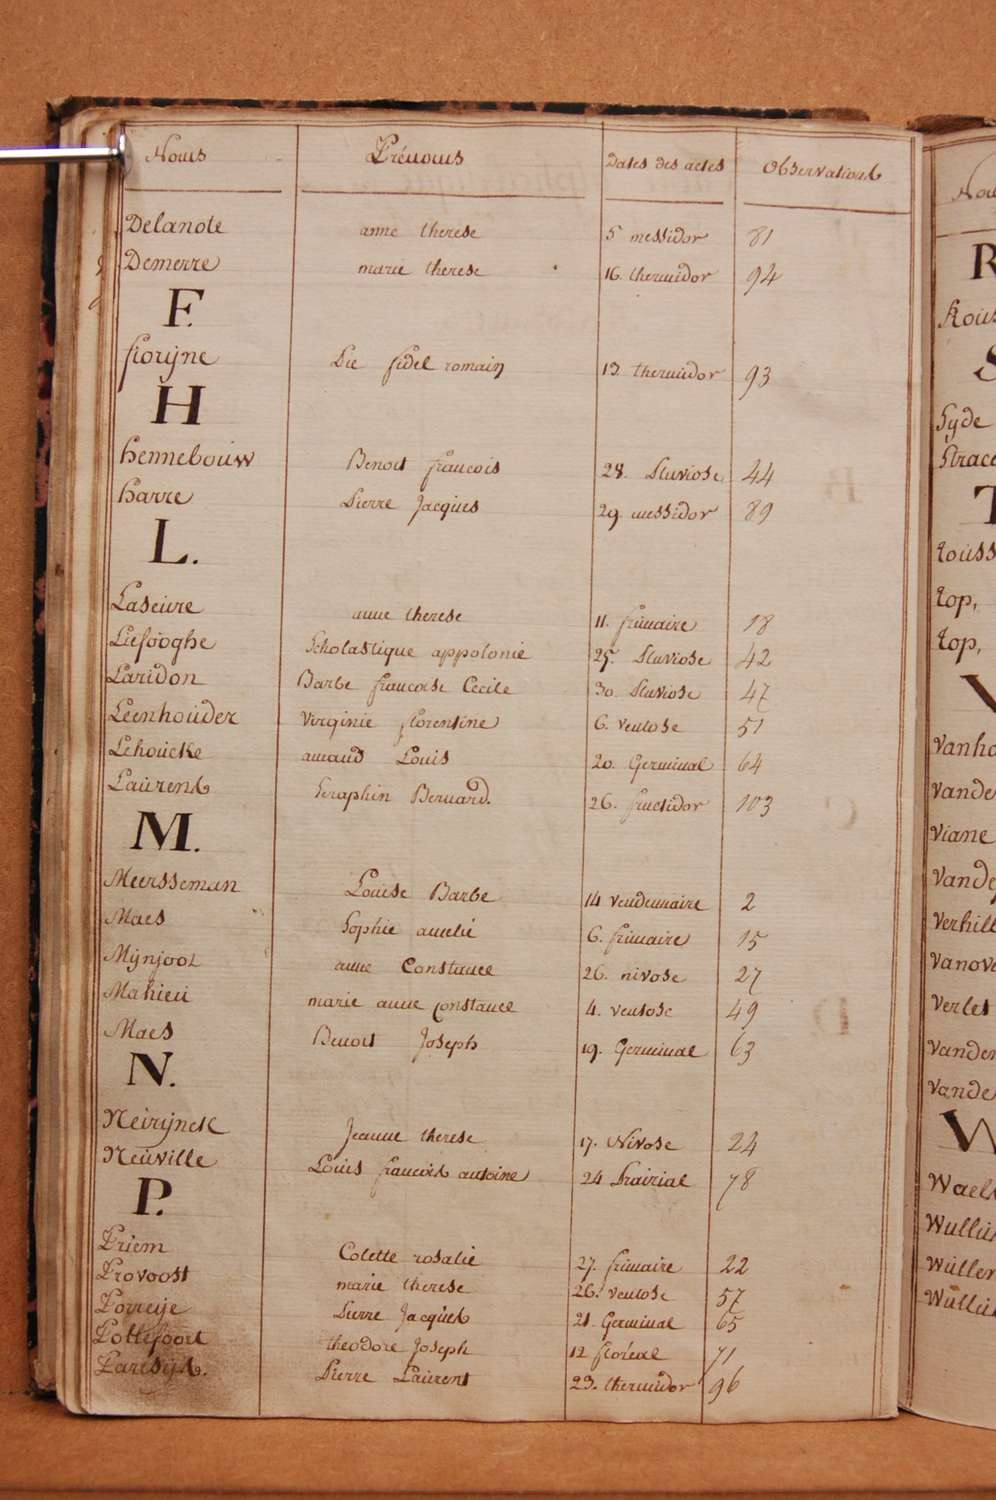 Noms Prénoms Dates des actes Observations
Delanote anne therese 5 messidor 81
Demerre marie therese 16. thermidor 94
F.
florijne Pie fidel romain 13. thermidor 93
H
hennebouw Benoit francois 28. Pluviose 44
harre Pierre Jacques 29. messidor 89
L.
Laseure anne therese 11. frimaire 18
Liefooghe Scholastique appolonie 25. Pluviose 42
Laridon Barbe francoise Cecile 30. Pluviose 47
Leenhouder virginie florentine 6. ventose 51
Lehoucke amand Louis 20. Germinal 64
Laurens Seraphin Bernard. 26. fructidor 103
M.
Meersseman Louise Barbe 14 vendemaire 2
Maes Sophie amelie 6. frimaire 15
Mijnjoot anne Constance 26. nivose 27
Mahieu marie anne constance 4. ventose 49
Maes Benoit Joseph 19. Germinal 63
N.
Neirijnck Jeanne therese 17. Nivose 24
Neuville Louis francois antoine 24 Prairial 78
P.
Priem Colette rosalie 27. frimaire 22
Provoost marie therese 26. ventose 57
Porreije Pierre Jacques 21. Germinal 65
Pottefoort theodore Joseph 12 floreal 71
Paresijs. Pierre Laurent 23. thermidor 96
Nou
R
Rous
S
Syde
Strace
T
touss
top,
top,
V
vanho
vande
viane
vande
verhill
vanove
verles
vander
vande
W
Waele
Wulli
Wuller
Wulli